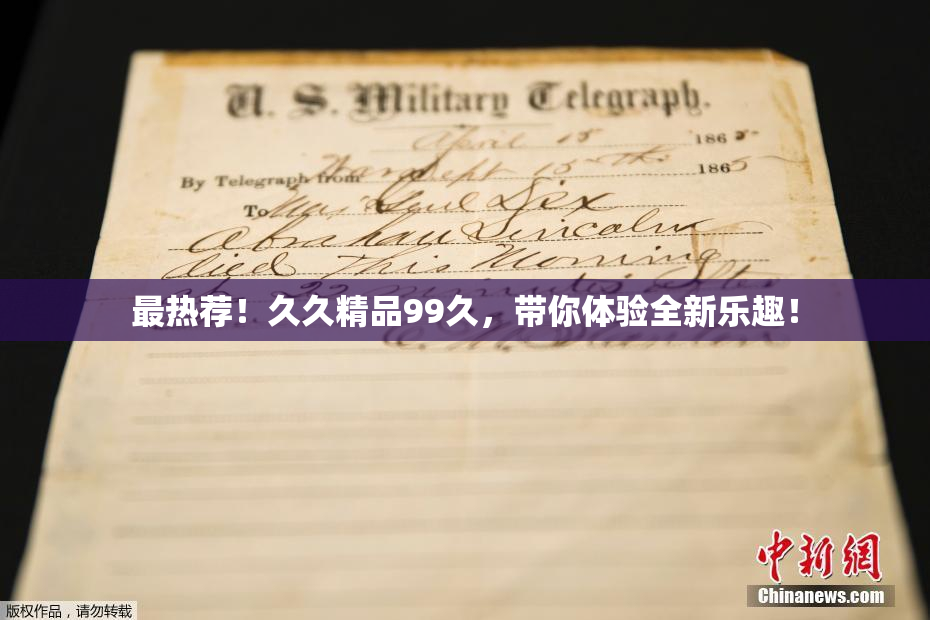 U. S. Military Telegraph.
April 15 1865
By Telegraph from War Dept 15th 1865
To Maj Genl Dix
Abraham Lincoln
died this Morning
at 22 minutes after
最热荐！久久精品99久，带你体验全新乐趣！
E. M. Stanton
中新網
Chinanews.com
版权作品，请勿转载